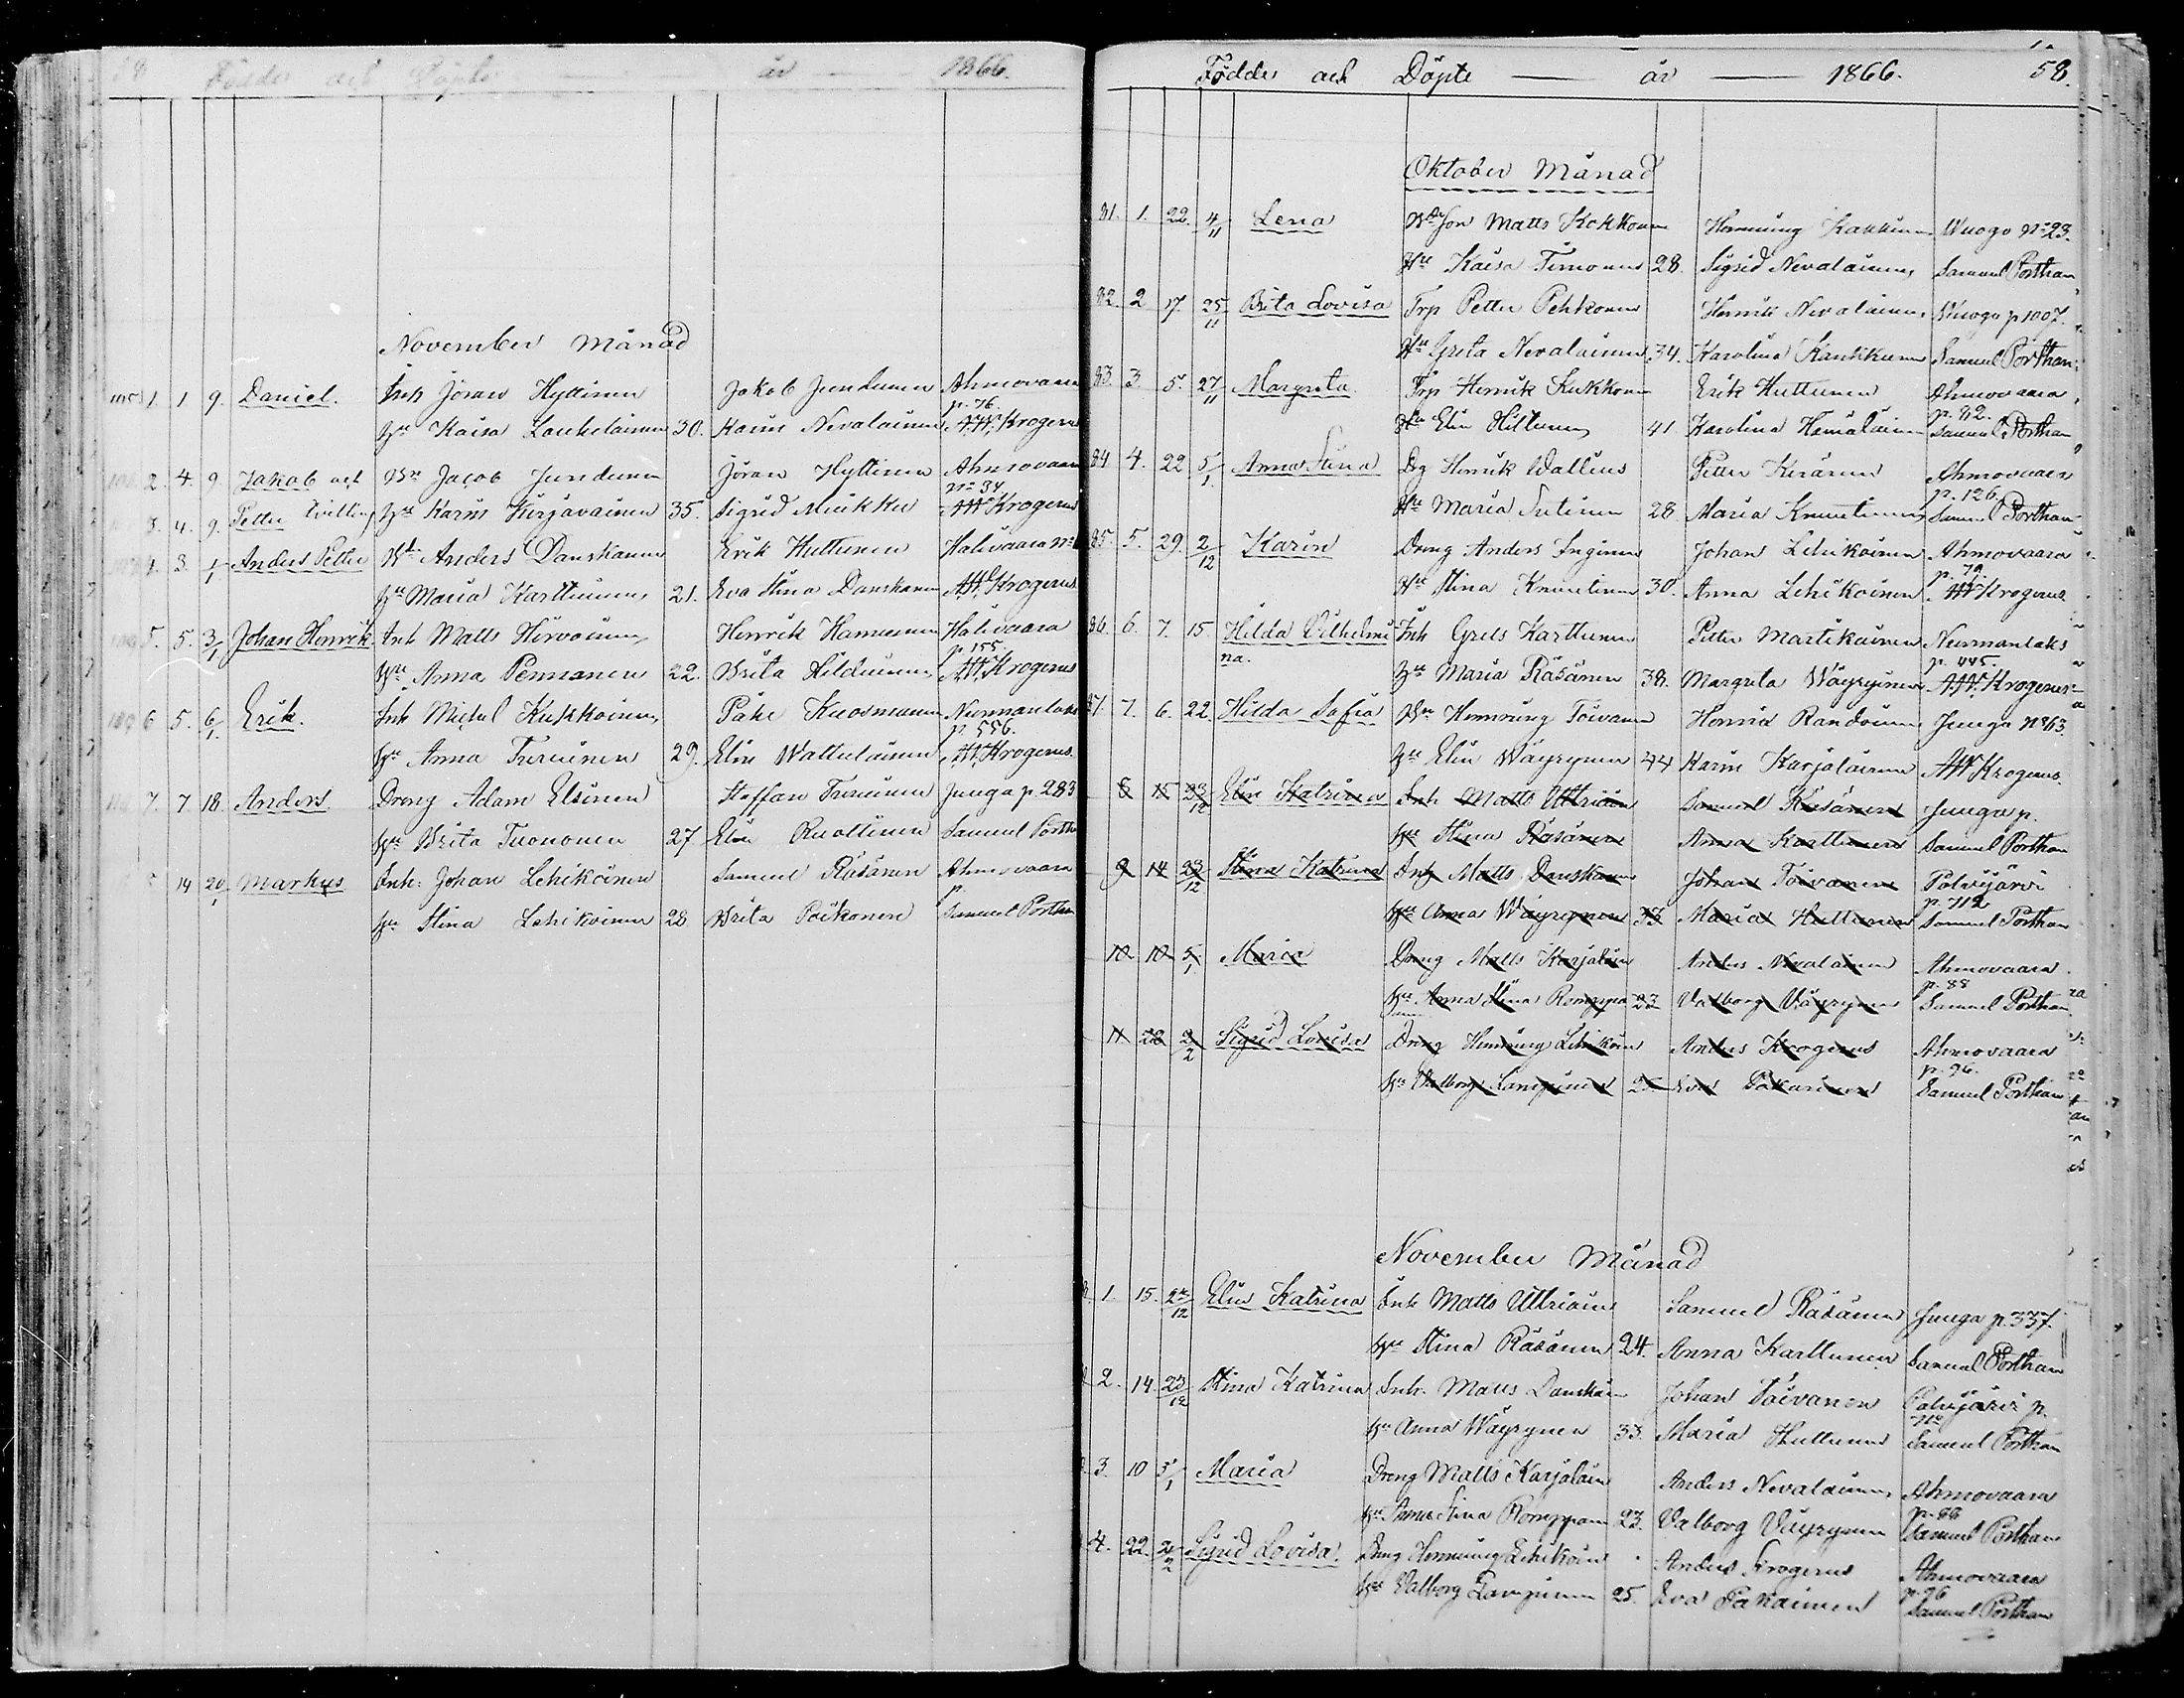 58 Födde och Döpte år 1866.
November Månad
105 1 1 9. Daniel. Inh Jöran Hyttinen Jakob Jundunen Ahmovaara
p. 76.
Hu Kaisa Laukelainen 30. Karin Nevalainen A.W. Krogerus
106 2. 4. 9. Jakob och Bn Jacob Jundunen Jöran Hyttinen Ahmovaara
No 34
3. 4. 9. Petter tvilling Hu Karin Kirjavainen 35. Sigrid Mükku A.W. Krogerus
4. 3. 1/1 Anders Petter Anders Danskanen Erik Huttunen Halivaara
Hu Maria Karttunen 21. Eva Stina Danskanen A.W. Krogerus
5. 5. 3/1 Johan Henrik Inh Matts Hirvoinen Henrik Hamunen Halivaara
p. 155.
Hu Anna Pennanen 22. Brita A.W. Krogerus
109 6 5. 6/1 Erik. Inh Michel Kukkoinen Påhl Kuosmanen Nurmanlaks
p. 556.
Hu Anna Turuinen 29. Elin Wattulainen A.W. Krogerus
7. 7 18. Anders Dreng Adam Elsinen Staffan Turuinen Junga p. 283
Hu Brita Tuononen 27 Elin Ruottinen Samuel Porthan
14 20/1 Markus Inh. Johan Lehikoinen Samuel Räsänen Ahmovaara
p.
Hu Stina Lehikoinen 28 Brita Piikonen Samuel Porthan
Födde och Döpte år 1866. 58.
Oktober Månad
81. 1. 22. 4/11 Lena Son Matts Kokkonen Henning Kakkinen Wuogo No 23.
Hu Kaisa Timonen 28. Sigrid Nevalainen Samuel Porthan
82. 2 17. 25/11 Brita Lovisa Trp Petter Pehkonen Henrik Nevalainen Wuogo p 1007.
Hu Greta Nevalainen 34. Karolina Kaukkunen Samuel Porthan
83. 3. 5. 27/11 Margreta Trp Henrik Kukkonen Erik Huttunen Ahmovaara
p. 82.
Hu Elin Hiltunen 41 Karolina Hämäläinen Samuel Porthan
84 4. 22 5/1 Anna Stina Dg Henrik Wallius Petter Keränen Ahmovaara
p. 126
Hu Maria Sutinen 28 Maria Knuutinen Samuel Porthan
85. 5. 29. 2/12 Karin Dreng Anders Inginen Johan Lehikoinen Ahmovaara
p. 79
Hu Stina Knuutinen 30. Anna Lehikoinen A.W. Krogerus
86. 6. 7. 15. Hilda Vilhelmi Inh Grels Karttunen Petter Martikainen Nurmanlaks
na. p. 445.
Hu Maria Räsänen 38. Margreta Wäyrynen A.W. Krogerus
87. 7. 6. 22. Hilda Sofia Bn Henning Toivanen Henrik Randoinen Junga No 63.
Hu Elin Wäyrynen 44 Karin Karjalainen A.W. Krogerus
8 15 23/12 Elin Katrina Inh Matts Uttriain Samuel Räsänen Junga p.
Hu Stina Räsänen Anna Karttunen Samuel Porthan
9 14 23/12 Stina Katrina Inh Matts Danskanen Johan Toivanen Polvijärvi
p. 712
Hu Anna Wäyrynen 33 Maria Huttunen Samuel Porthan
10 10 5/1 Maria Dreng Matts Karjalain Anders Nevalainen Ahmovaara
p. 88
Hu Anna Stina Romppa 23 Valborg Väyrynen Samuel Porthan
11 28 2/2 Sigrid Lovisa Dreng Henning Lehikoin Anders Krogerus Ahmovaara
p. 96.
Hu Valborg 25 Eva Pakarinen Samuel Porthan
November Månad
1. 15. 22/12 Elin Katrina Inh Matts Uttriain Samuel Räsänen Junga p. 337.
Hu Stina Räsänen 24. Anna Karttunen Samuel Porthan
2. 14 23/12 Stina Katrina Inh. Matts Danskan Johan Toivanen Polvijärvi p.
712
Hu Anna Wäyrynen 33. Maria Huttunen Samuel Porthan
3. 10 5/1 Maria Dreng Matts Karjalain Anders Nevalainen Ahmovaara
p. 88
Hu Anna Stina Romppan 23. Valborg Väyrynen Samuel Porthan
4. 22. 2/2 Sigrid Lovisa. Dreng Henning Lehikoin Anders Krogerus Ahmovaara
p. 96
Hu Valborg 25. Eva Pakainen Samuel Porthan